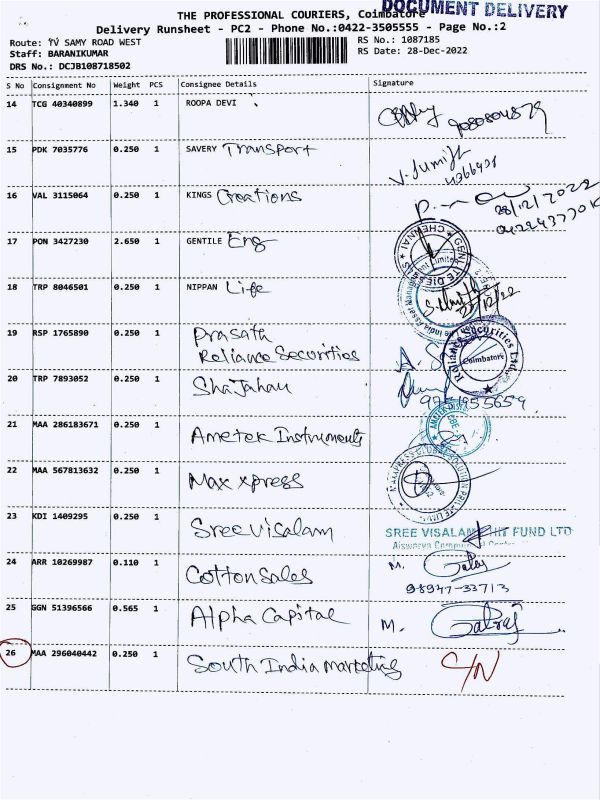 DOCUMENT DELIVERY
THE PROFESSIONAL COURIERS, Coimbatore
Delivery Runsheet - PC2 - Phone No.:0422-3505555 - Page No.:2
Route: TV SAMY ROAD WEST RS No.: 1087185
Staff: BARANIKUMAR RS Date: 28-Dec-2022
DRS No.: DCJB108718502
S No Consignment No Weight PCS Consignee Details Signature
14 TCG 40340899 1.340 1 ROOPA DEVI
15 PDK 7035776 0.250 1 SAVERY Transport
16 VAL 3115064 0.250 1 KINGS Creations
28/12/2022
17 PON 3427230 2.650 1 GENTILE Eng
18 TRP 8046501 0.250 1 NIPPAN Life
19 RSP 1765890 0.250 1 Prasath
Reliance Securities
Reliance Securities Ltd. Coimbatore
20 TRP 7893052 0.250 1 Shajahan
9751955659
21 MAA 286183671 0.250 1 Ametek Instruments
22 MAA 567813632 0.250 1 Max xpress
23 KDI 1409295 0.250 1 Sree Visalam
SREE VISALAM CHIT FUND LTD
24 ARR 10269987 0.110 1 Cotton Sales M.
98947-33713
25 GGN 51396566 0.565 1 Alpha Capital M.
26 MAA 296040442 0.250 1 South India marketing C/N